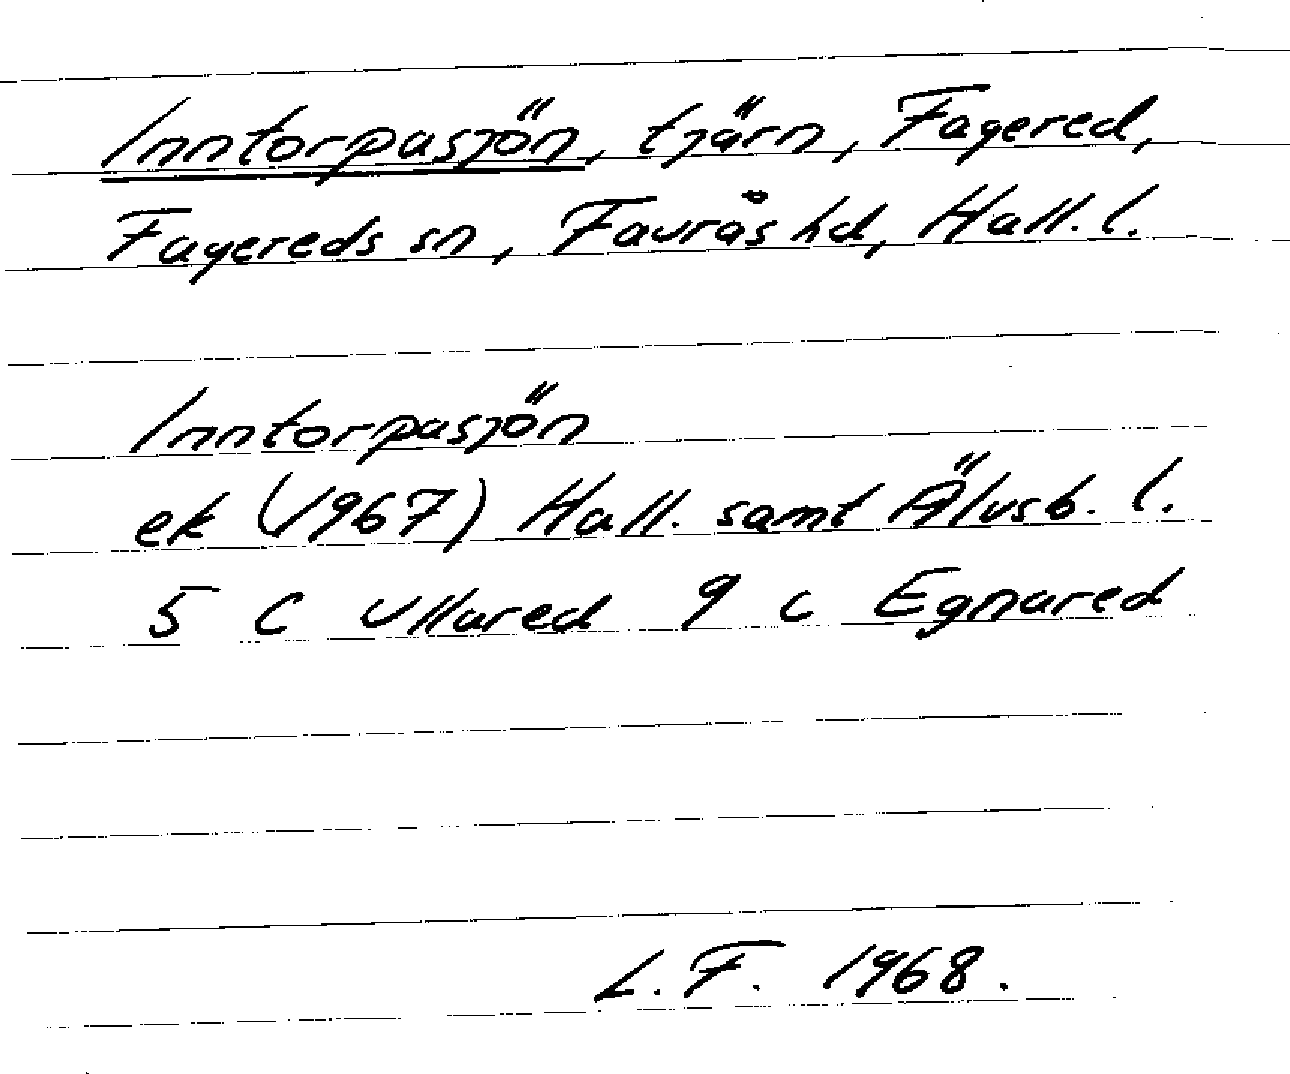 Inntorpasjön, tjärn, Fagered,
Fagereds sn, Faurås hd, Hall. l.
Inntorpasjön
ek (1967) Hall. samt Älvsb. l.
5 C Ullared 9 c Egnared
L. F. 1968.